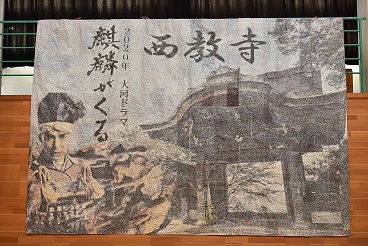 西教寺
2020年 大河ドラマ
麒麟がくる